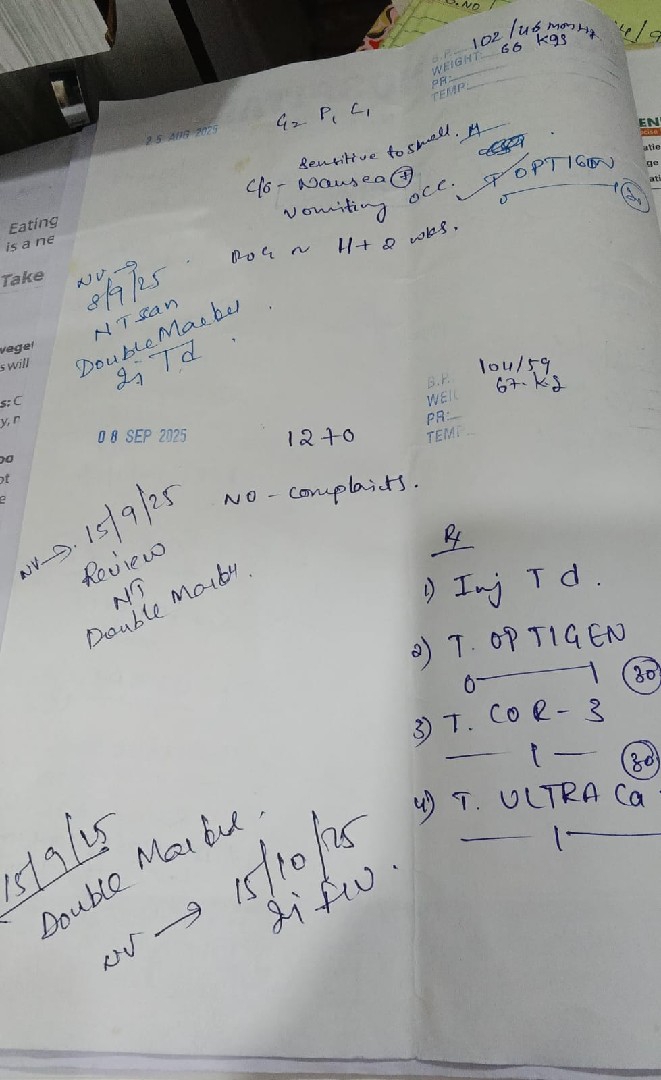 B.P. 102/46 mmHg
WEIGHT 66 kgs
PR:
TEMP
25 AUG 2025
G2 P1 L1
Sensitive to smell.
C/o - Nausea +
Vomiting occ.
T OPTIGEN
0 1 30
POG ~ 11+2 wks.
NV →
8/9/25
NT Scan
Double Marker
Inj Td
B.P. 104/59
WEI 67.kg
PR:
TEMP
08 SEP 2025
12+0
NO - complaints.
NV → 15/9/25
Review
NT
Double Marker.
Rx
1) Inj Td.
2) T. OPTIGEN
0 1 30
3) T. COR-3
1 30
4) T. ULTRA Ca
1
15/9/25
Double Marker.
NV → 15/10/25
Eating
is a ne
Take
veget
s will
s: C
y, n
ot
e
EN